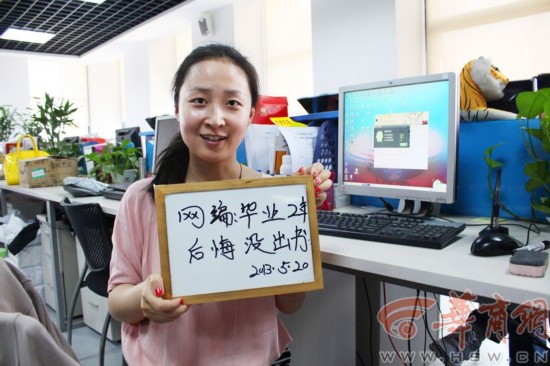 网编:毕业2年
后悔没出书
2013.5.20
华商网
WWW.HSW.CN